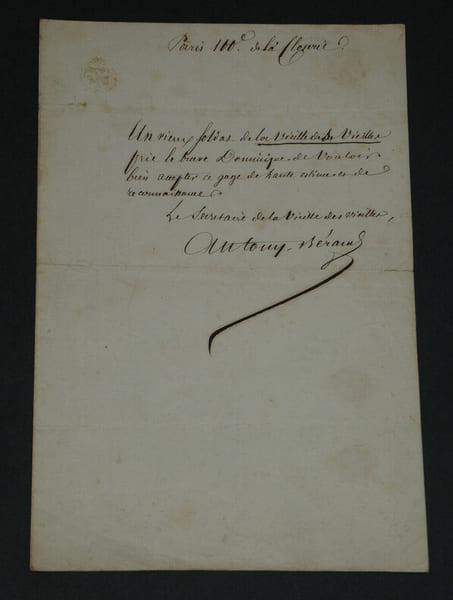 Paris 100e. de la
Un vieux soldat de la Vieille des Vieilles
prie le brave Dominique de Vouloir
bien accepter ce gage de haute estime et de
reconnaissance
Le Secretaire de la Vieille des vieilles,
Antony-Béraud